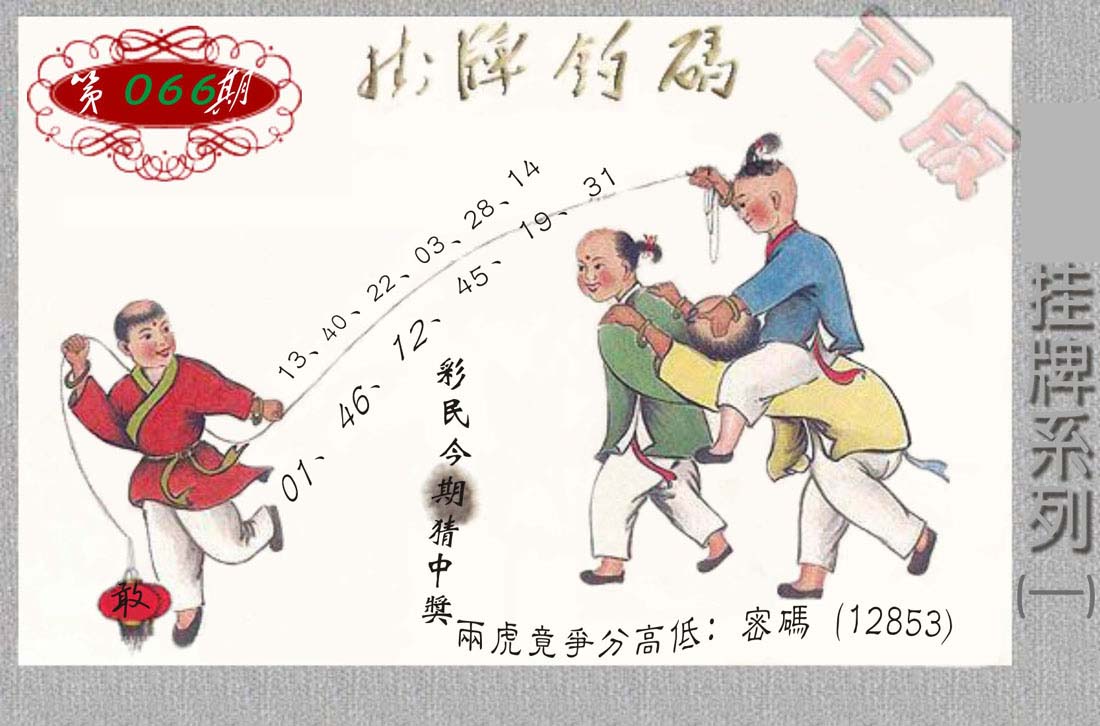 第066期
掛牌釣碼
正版
13、40、22、03、28、14
01、46、12、45、19、31
彩民今期猜中獎
敢
兩虎竟爭分高低：密碼（12853）
挂牌系列(一)